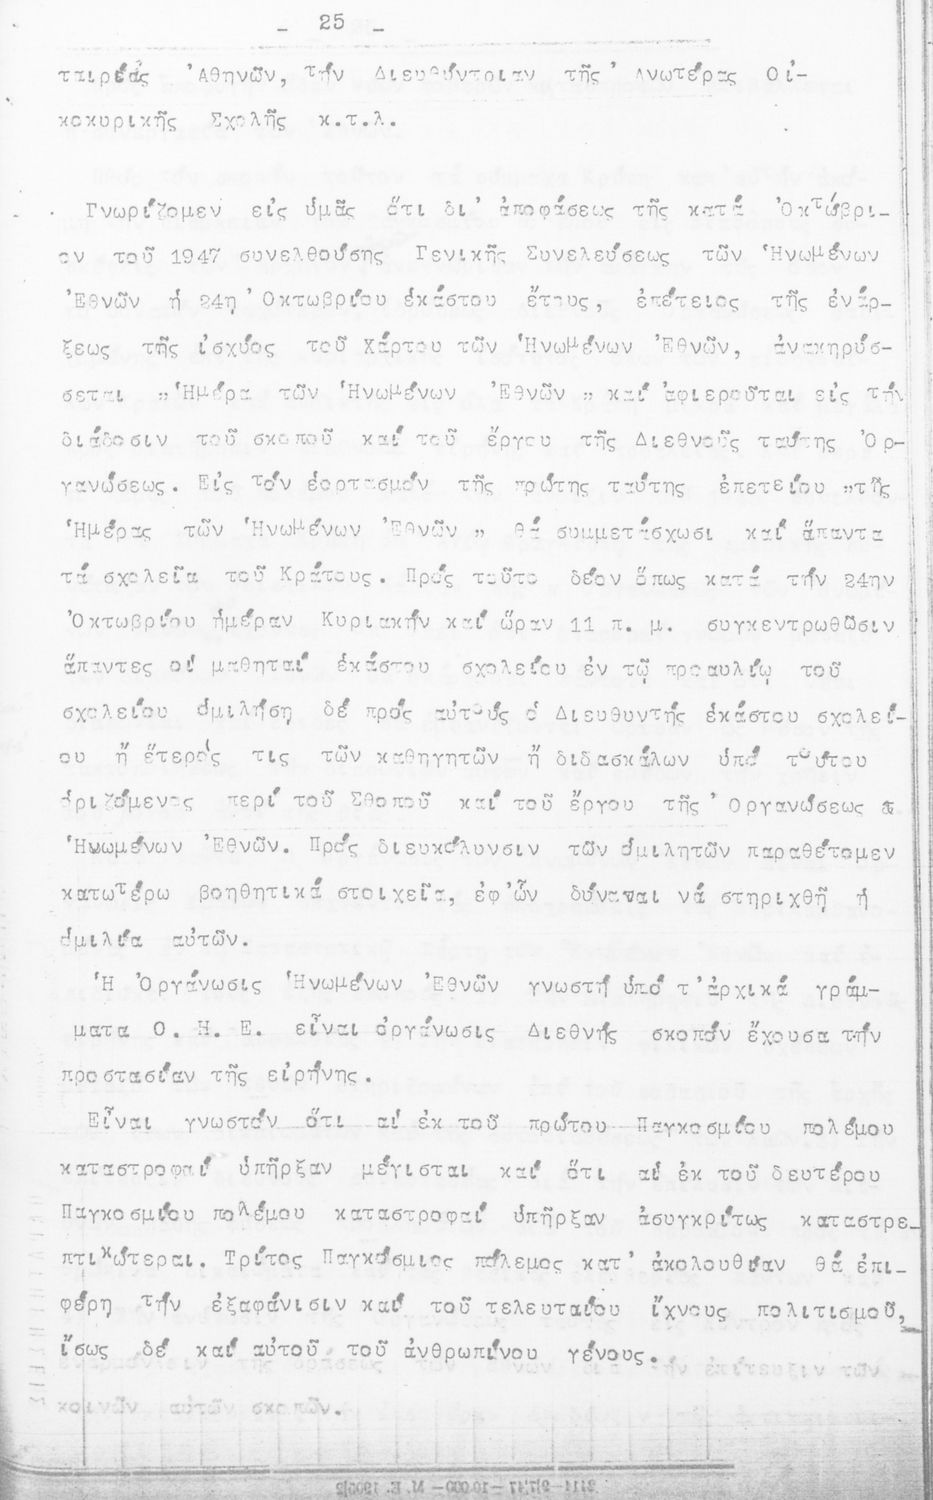 - 25 -
ταιρείας 'Αθηνῶν, τήν Διευθύντριαν τῆς 'Ανωτέρας Οἰ-
κοκυρικῆς Σχολῆς κ.τ.λ.
Γνωρίζομεν εἰς ὑμᾶς ὅτι δι' ἀποφάσεως τῆς κατά Ὀκτώβρι-
ον τοῦ 1947 συνελθούσης Γενικῆς Συνελεύσεως τῶν Ἡνωμένων
Ἐθνῶν ἡ 24η Ὀκτωβρίου ἑκάστου ἔτους, ἐπέτειος τῆς ἐνάρ-
ξεως τῆς ἰσχύος τοῦ Χάρτου τῶν Ἡνωμένων Ἐθνῶν, ἀνακηρύσ-
σεται „Ἡμέρα τῶν Ἡνωμένων Ἐθνῶν „ καί ἀφιεροῦται εἰς τήν
διάδοσιν τοῦ σκοποῦ καί τοῦ ἔργου τῆς Διεθνοῦς ταύτης Ὀρ-
γανώσεως. Εἰς τόν ἑορτασμόν τῆς πρώτης ταύτης ἐπετείου „τῆς
Ἡμέρας τῶν Ἡνωμένων Ἐθνῶν „ θά συμμετάσχωσι καί ἅπαντα
τά σχολεῖα τοῦ Κράτους. Πρός τοῦτο δέον ὅπως κατά τήν 24ην
Ὀκτωβρίου ἡμέραν Κυριακήν καί ὥραν 11 π. μ. συγκεντρωθῶσιν
ἅπαντες οἱ μαθηταί ἑκάστου σχολείου ἐν τῷ προαυλίῳ τοῦ
σχολείου ὁμιλήση δέ πρός αὐτούς ὁ Διευθυντής ἑκάστου σχολεί-
ου ἤ ἕτερός τις τῶν καθηγητῶν ἤ διδασκάλων ὑπό τούτου
ὁριζόμενος περί τοῦ Σθοποῦ καί τοῦ ἔργου τῆς Ὀργανώσεως
Ἡνωμένων Ἐθνῶν. Πρός διευκόλυνσιν τῶν ὁμιλητῶν παραθέτομεν
κατωτέρω βοηθητικά στοιχεῖα, ἐφ'ὧν δύναται νά στηριχθῆ ἡ
ὁμιλία αὐτῶν.
Ἡ Ὀργάνωσις Ἡνωμένων Ἐθνῶν γνωστή ὑπό τ'ἀρχικά γράμ-
ματα Ο. Η. Ε. εἶναι ὀργάνωσις Διεθνής σκοπόν ἔχουσα τήν
προστασίαν τῆς εἰρήνης.
Εἶναι γνωστόν ὅτι αἱ ἐκ τοῦ πρώτου Παγκοσμίου πολέμου
καταστροφαί ὑπῆρξαν μέγισται καί ὅτι αἱ ἐκ τοῦ δευτέρου
Παγκοσμίου πολέμου καταστροφαί ὑπῆρξαν ἀσυγκρίτως καταστρε-
πτικώτεραι. Τρίτος Παγκόσμιος πόλεμος κατ' ἀκολουθίαν θά ἐπι-
φέρη τήν ἐξαφάνισιν καί τοῦ τελευταίου ἴχνους πολιτισμοῦ,
ἴσως δέ καί αὐτοῦ τοῦ ἀνθρωπίνου γένους.